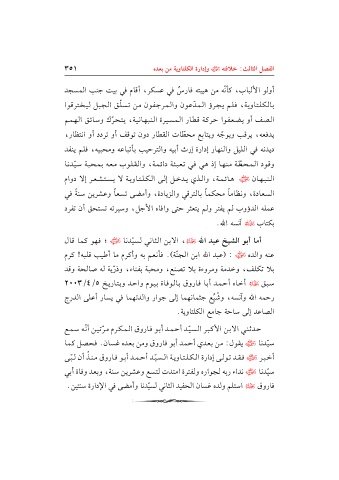 الفصل الثالث: خلافته ﷺ وإدارة الكلتاوية من بعده ٣٥١
أولو الألباب، كأنّه من هيبته فارسٌ في عسكر، أقام في بيت جنب المسجد
بالكلتاوية، فلم يجرؤ المدّعون والمرجفون من تسلّق الجبل ليخترقوا
الصف أو يضعفوا حركة قطار المسيرة النبهانية، يتحرّك وسائق الهمم
يدفعه، يرقب ويوجّه ويتابع محطّات القطار دون توقف أو تردد أو انتظار،
ديدنه في الليل والنهار إدارة إرث أبيه والترحيب بأتباعه ومحبيه، فلم ينفد
وقود المحطّة منها إذ هي في تعبئة دائمة، والقلوب معه بمحبة سيّدنا
النبهان هائمة، والذي يدخل إلى الكلتاوية لا يستشعر إلا دوام
السعادة، ونظاماً محكماً بالترقي والزيادة، وأمضى تسعاً وعشرين سنةً في
عمله الدؤوب لم يفتر ولم يتعثر حتى وافاه الأجل، وسيرته تستحق أن تفرد
بكتاب آنسه الله.
أما أبو الشيخ عبد الله، الابن الثاني لسيّدنا ؛ فهو كما قال
عنه والده : (عبد الله ابن الجنّة). فأنعم به وأكرم ما أطيب قلبه! كرم
بلا تكلف، وخدمة ومروءة بلا تصنع، ومحبة بفناء، وذرّية له صالحة وقد
سبق أخاه أحمد أبا فاروق بالوفاة بيوم واحد وبتاريخ ٥/ ٤/ ٢٠٠٣
رحمه الله وآنسه، وشُيّع جثمانهما إلى جوار والدتهما في يسار أعلى الدرج
الصاعد إلى ساحة جامع الكلتاوية.
حدثني الابن الأكبر السيّد أحمد أبو فاروق المكرم مرّتين أنّه سمع
سيّدنا يقول: من بعدي أحمد أبو فاروق ومن بعده غسان. فحصل كما
أخبر فقد تولى إدارة الكلتاوية السيّد أحمد أبو فاروق منذ أن لبّى
سيّدنا نداء ربه لجواره ولفترة امتدت لتسع وعشرين سنة، وبعد وفاة أبي
فاروق استلم ولده غسان الحفيد الثاني لسيّدنا وأمضى في الإدارة سنتين.